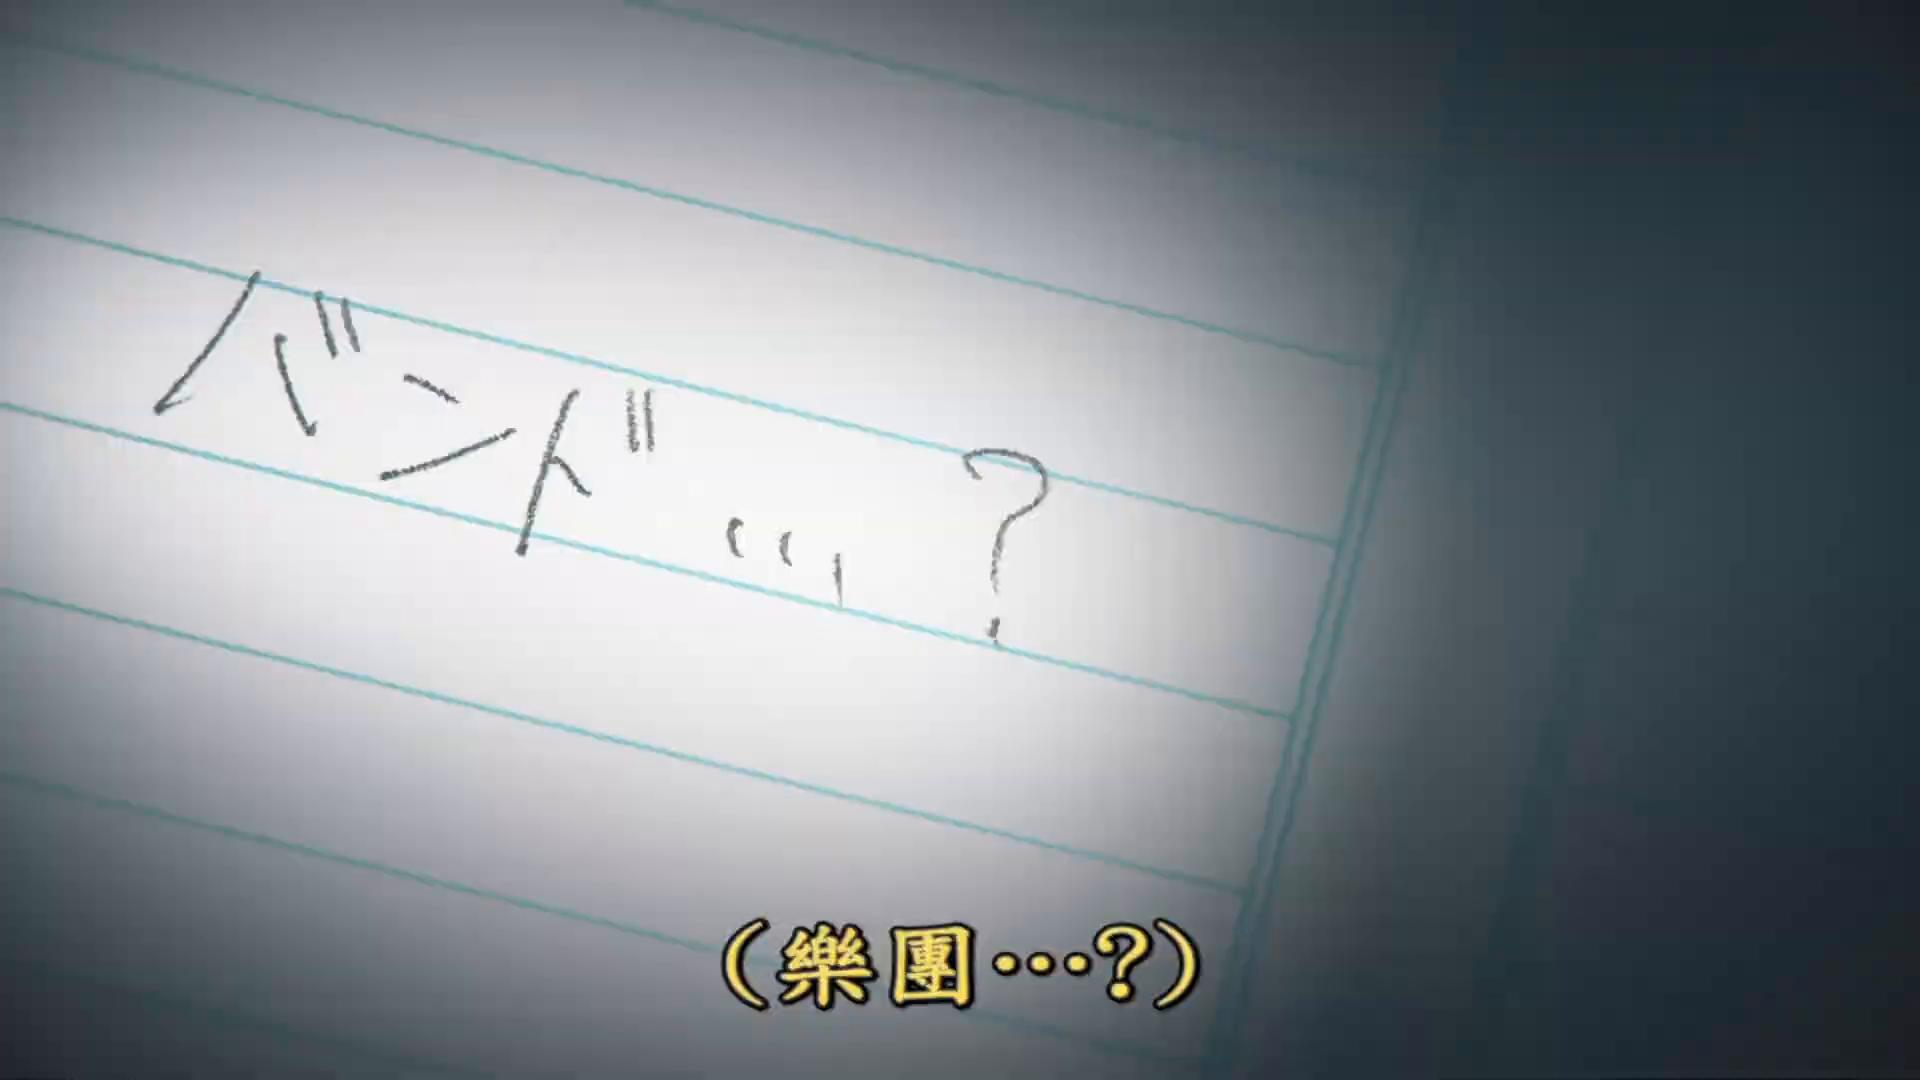 バンド…?
(樂團…?)